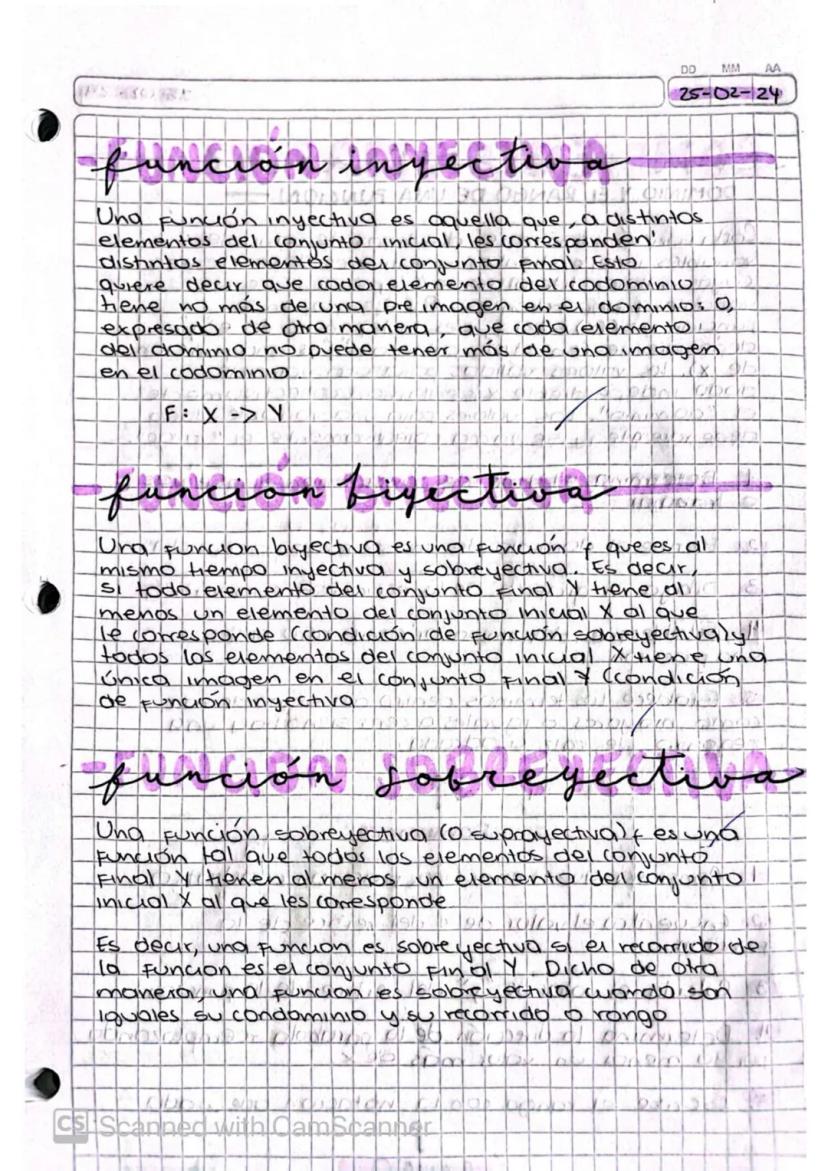 DD MM AA
25-02-24
función inyectiva
Una función inyectiva es aquella que, a distintos
elementos del conjunto inicial, les corresponden
distintos elementos del conjunto final. Esto
quiere decir que cada elemento del codominio
tiene no más de una pre imagen en el dominio. O,
expresado de otra manera, que cada elemento
del dominio no puede tener más de una imagen
en el codominio.
F: X -> Y
función biyectiva
Una funcion biyectiva es una función f que es al
mismo tiempo inyectiva y sobreyectiva. Es decir,
si todo elemento del conjunto final Y tiene al
menos un elemento del conjunto inicial X al que
le corresponde (condición de función sobreyectiva) y
todos los elementos del conjunto inicial X tiene una
única imagen en el conjunto final Y (condición
de función inyectiva
función sobreyectiva
Una función sobreyectiva (o suprayectiva) f es una
función tal que todos los elementos del conjunto
final Y tienen al menos un elemento del conjunto
inicial X al que les corresponde
Es decir, una funcion es sobreyectiva si el recorrido de
la funcion es el conjunto final Y. Dicho de otra
manera, una funcion es sobreyectiva cuando son
iguales su condominio y su recorrido o rango
CS Scanned with CamScanner